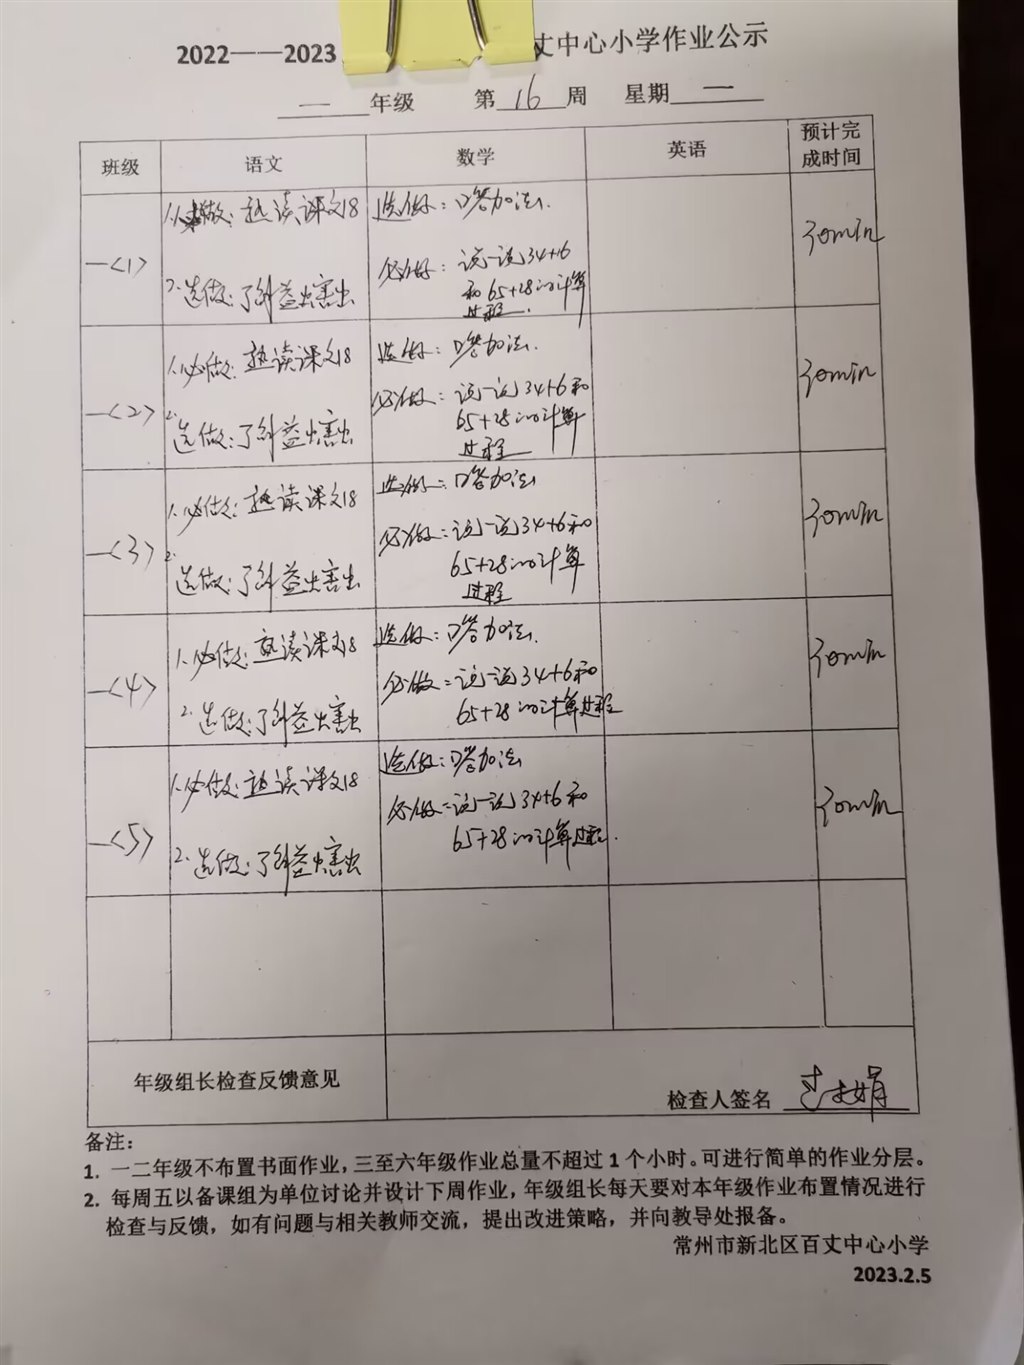 2022——2023 丈中心小学作业公示
一 年级 第 16 周 星期 一
班级 语文 数学 英语 预计完
成时间
一<1> 1.必做：熟读课文18 选做：口答加法. 30min
2.选做：了解益虫害虫 必做：说一说34+6
和65+28的计算
过程.
一<2> 1.必做：熟读课文18 选做：口答加法. 30min
2.选做：了解益虫害虫 必做：说一说34+6和
65+28的计算
过程
一<3> 1.必做：熟读课文18 选做：口答加法 30min
2.选做：了解益虫害虫 必做：说一说34+6和
65+28的计算
过程
一<4> 1.必做：熟读课文18 选做：口答加法. 30min
2.选做：了解益虫害虫 必做：说一说34+6和
65+28的计算过程
一<5> 1.必做：熟读课文18 选做：口答加法 30min
2.选做：了解益虫害虫 必做：说一说34+6和
65+28的计算过程.
年级组长检查反馈意见
检查人签名
备注：
1. 一二年级不布置书面作业，三至六年级作业总量不超过1个小时。可进行简单的作业分层。
2. 每周五以备课组为单位讨论并设计下周作业，年级组长每天要对本年级作业布置情况进行
检查与反馈，如有问题与相关教师交流，提出改进策略，并向教导处报备。
常州市新北区百丈中心小学
2023.2.5